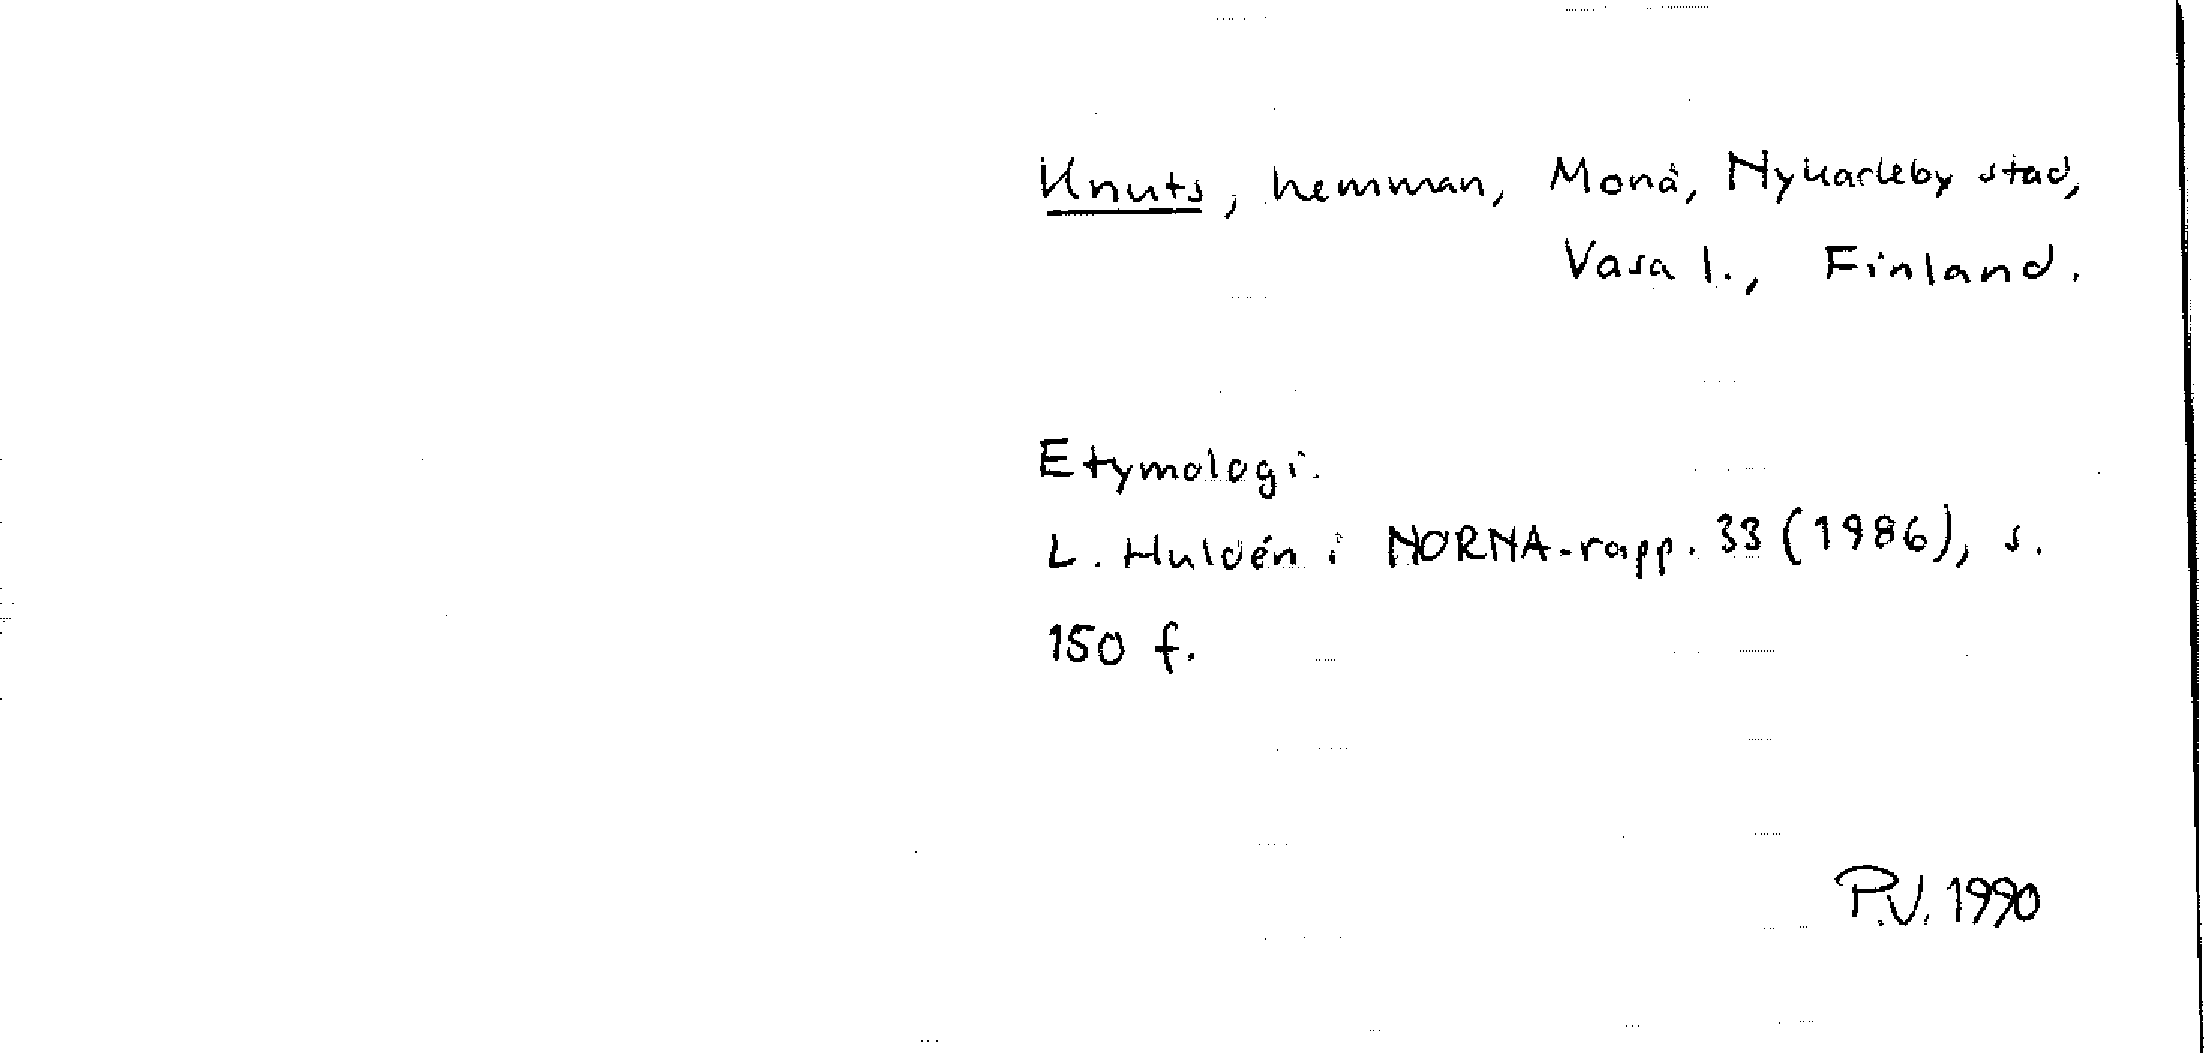 Knuts, hemman, Monå, Nykarleby stad,
Vasa l., Finland.
Etymologi.
L. Huldén i NORNA-rapp. 33 (1986), s.
150 f.
P.V. 1990